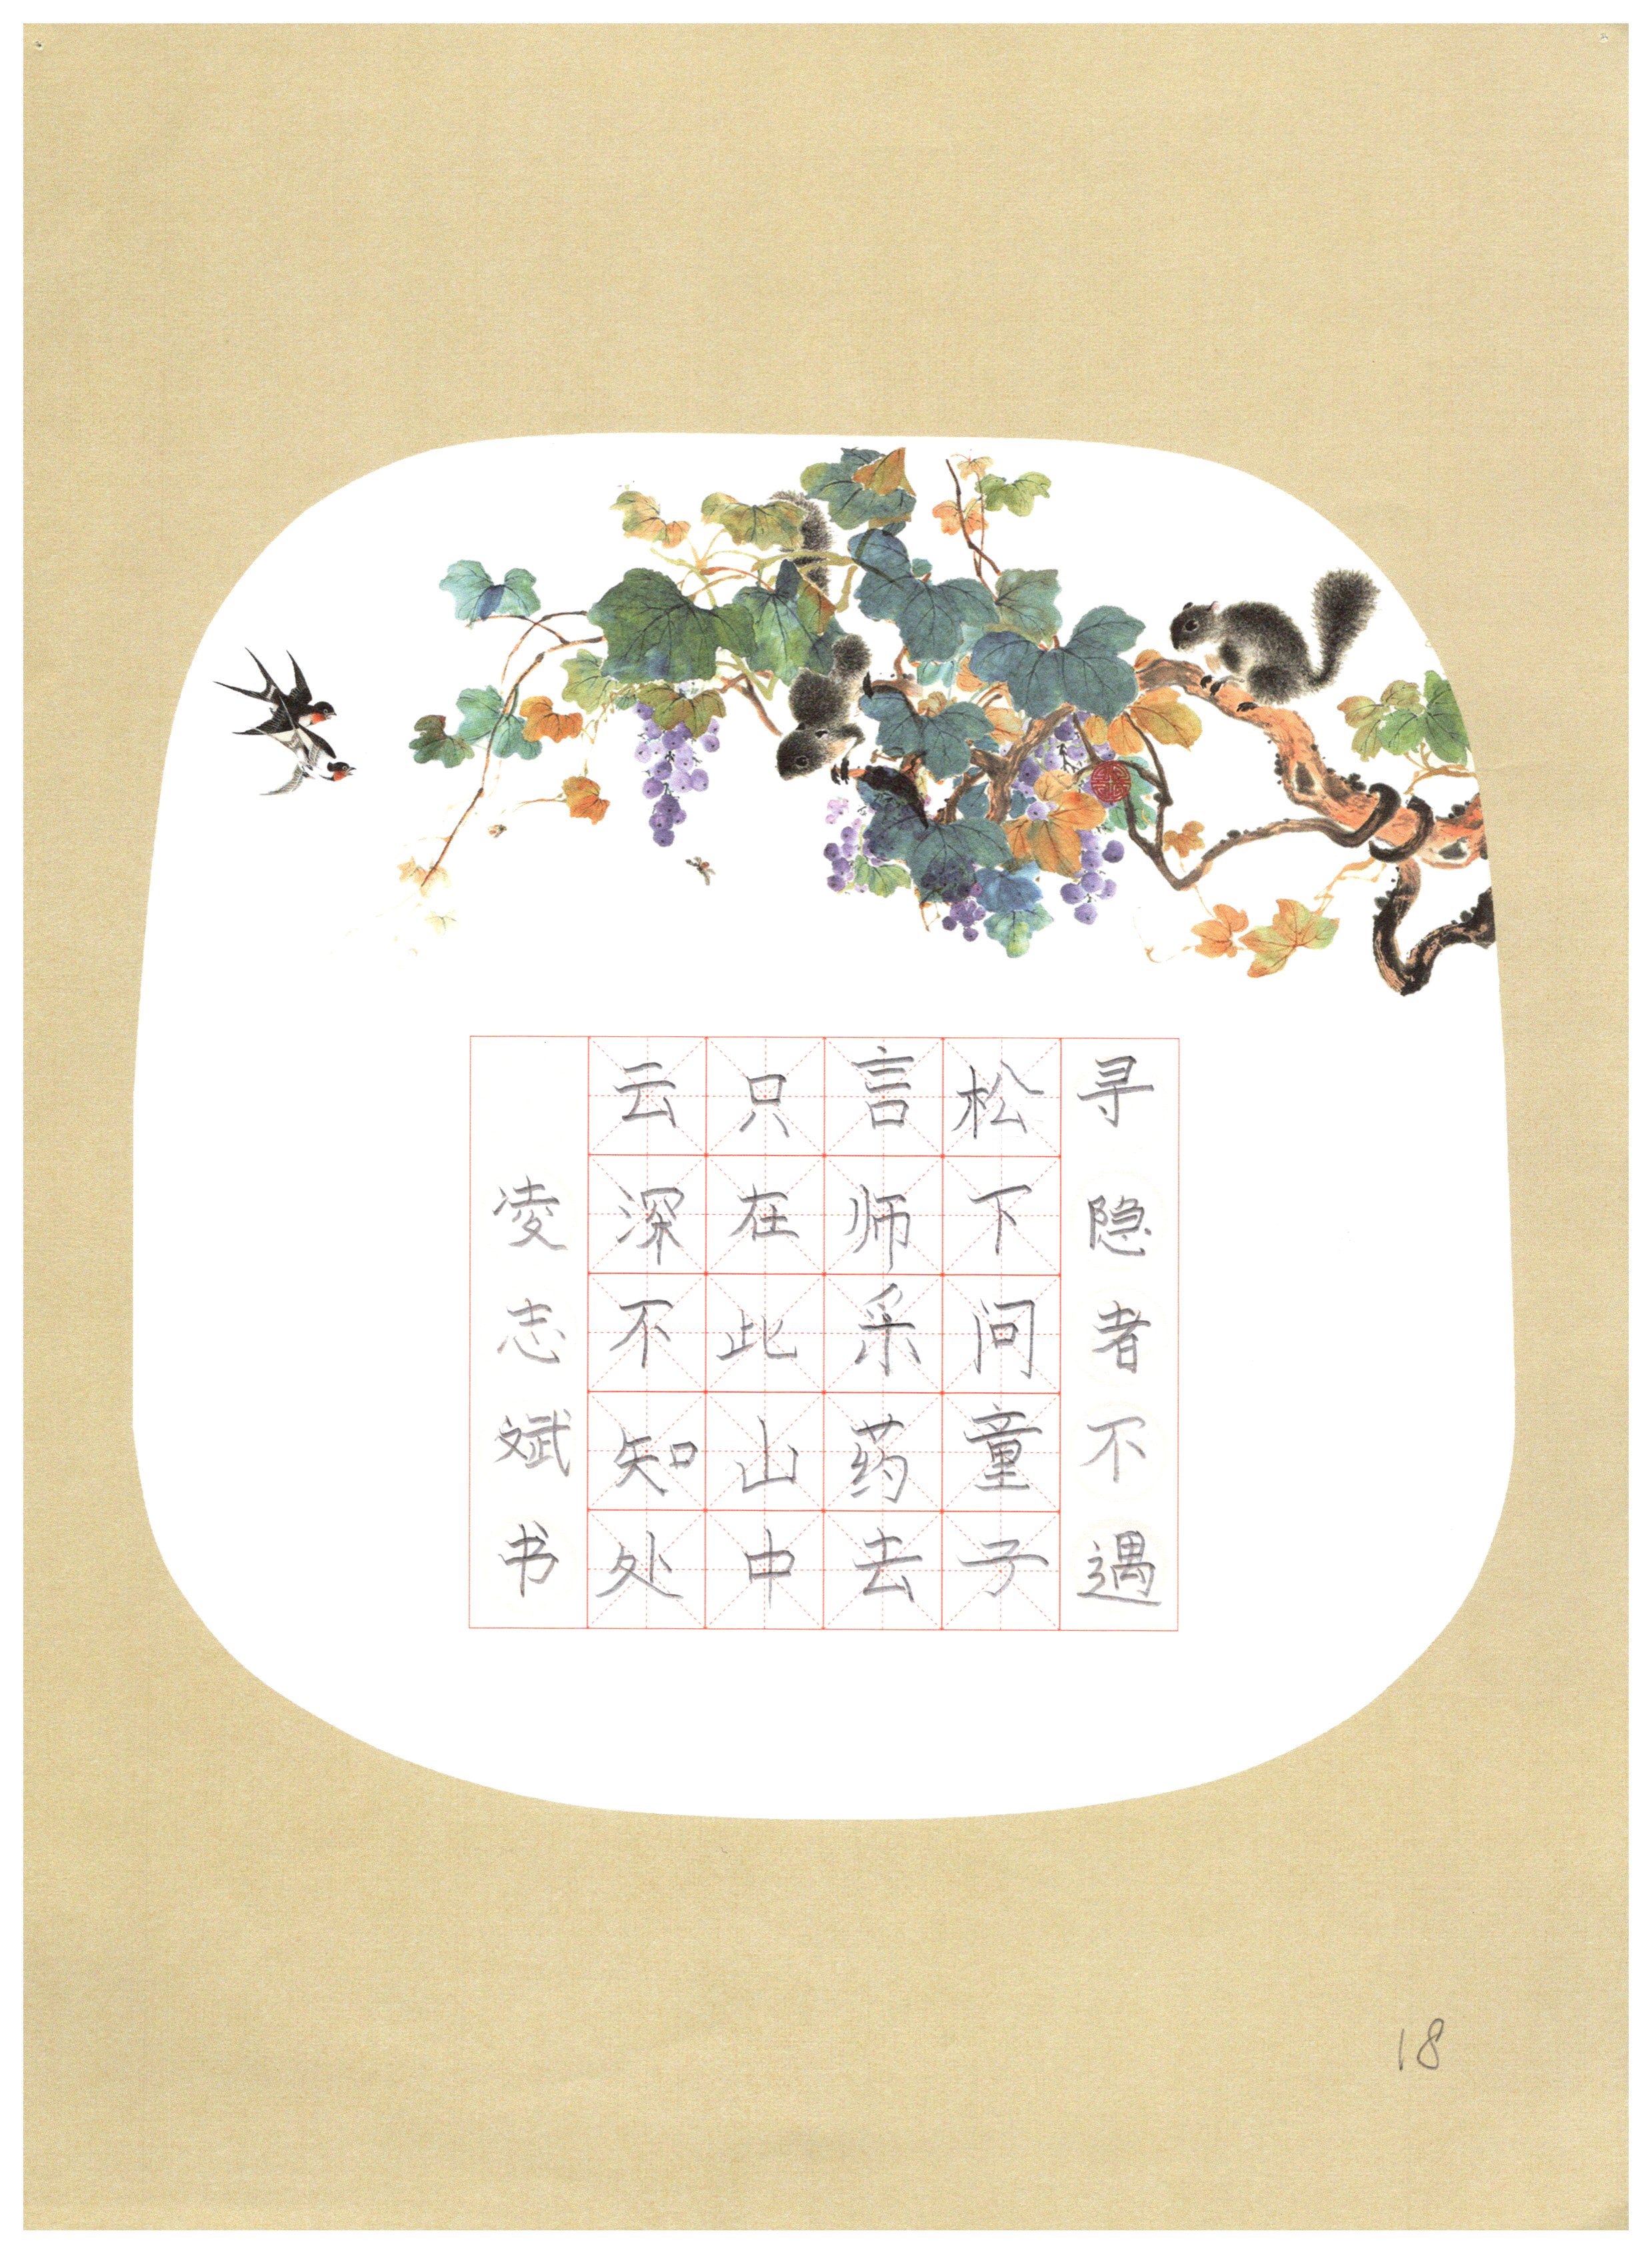 寻隐者不遇
松下问童子
言师采药去
只在此山中
云深不知处
凌志斌书
18